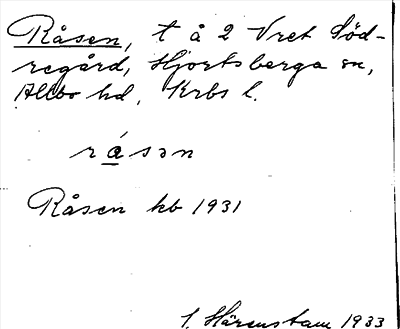 Råsen, t å 2 Vret Söd-
regård, Hjortsberga sn,
Allbo hd, Krbs l.
råsən
Råsen kb 1931
S. Härenstam 1933